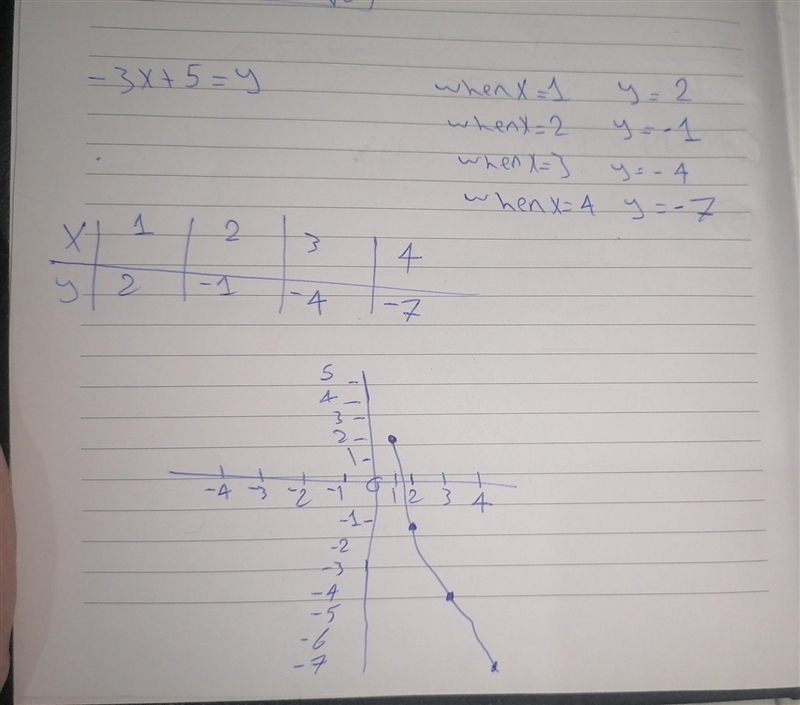 -3x+5=y
when x=1 y=2
when x=2 y=-1
when x=3 y=-4
when x=4 y=-7
x 1 2 3 4
y 2 -1 -4 -7
5
4
3
2
1
-4 -3 -2 -1 0 1 2 3 4
-1
-2
-3
-4
-5
-6
-7